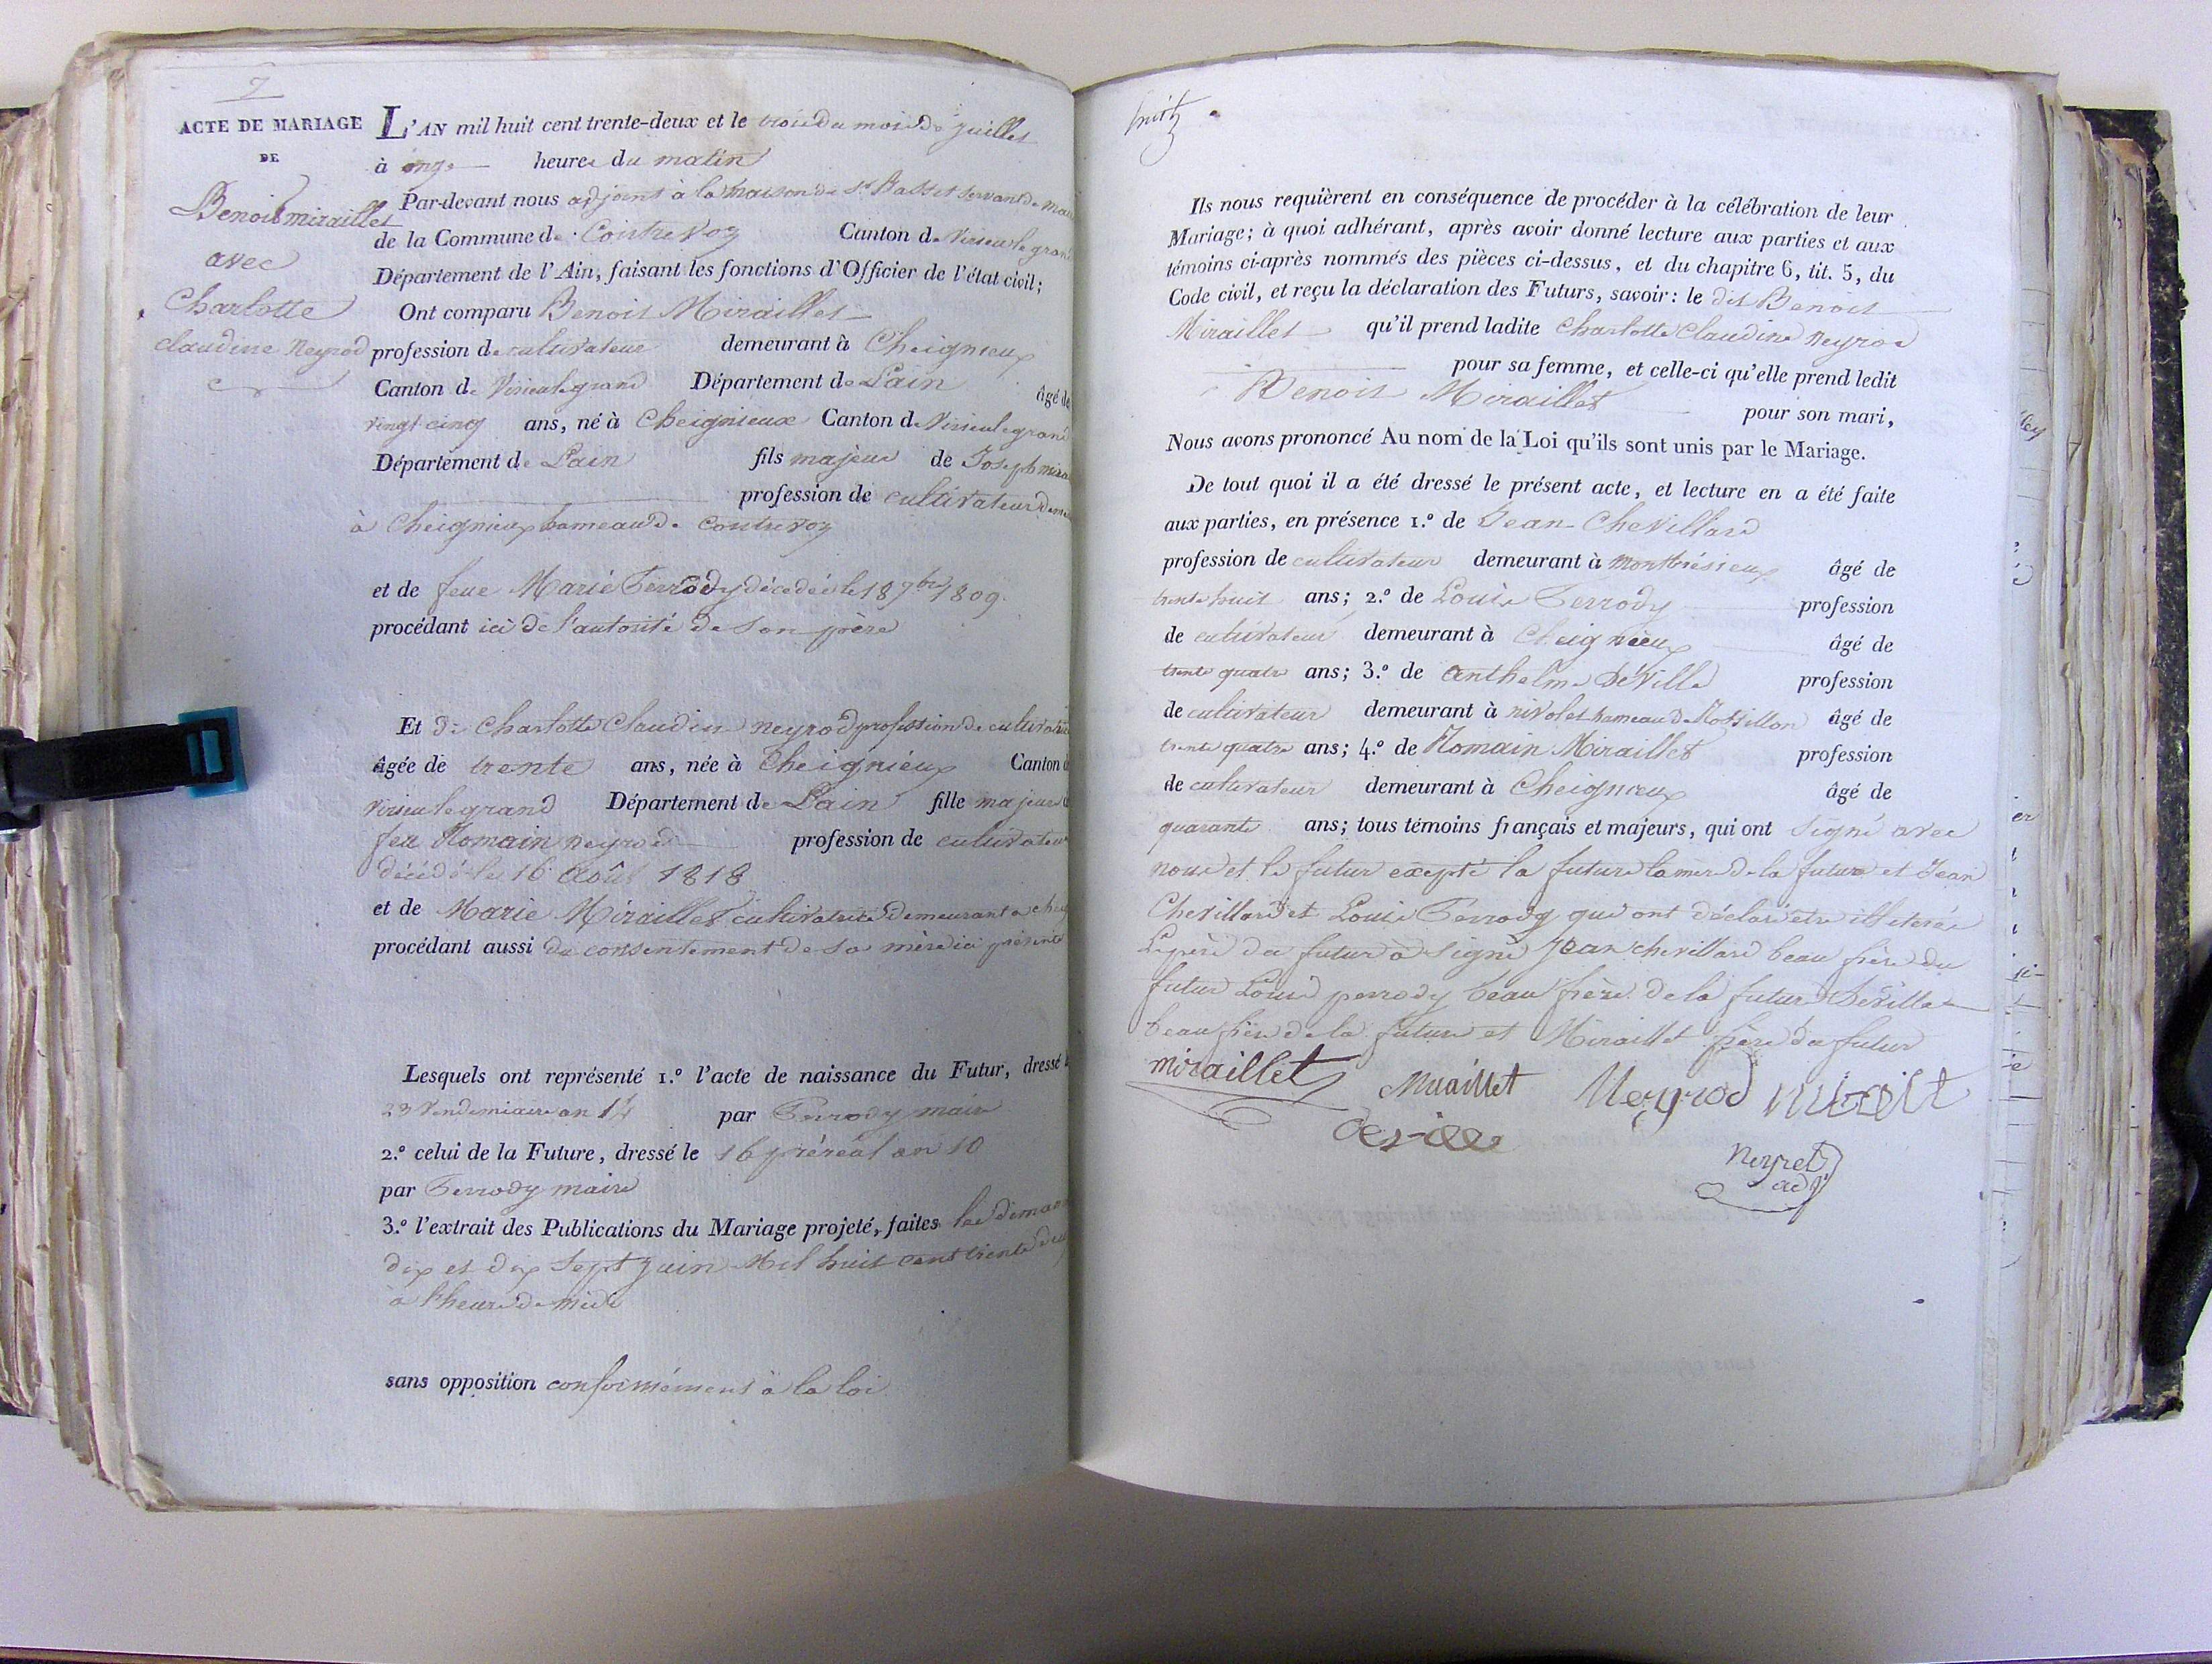 7
ACTE DE MARIAGE
DE
Benoit miraillet
avec
Charlotte
claudine Neyrod
L'AN mil huit cent trente-deux et le trois du mois de juillet
à onze heures du matin
Par-devant nous adjoint à la maison de servant de
de la Commune de Contrevoz Canton de Virieu le grand
Département de l'Ain, faisant les fonctions d'Officier de l'état civil;
Ont comparu Benoit Miraillet
profession de cultivateur demeurant à Cheignieux
Canton de Virieu le grand Département de Lain âgé de
vingt cinq ans, né à Cheignieux Canton de Virieu le grand
Département de Lain fils majeur de Joseph
profession de cultivateur
à Cheignieux hameau de Contrevoz
et de feue Marie Perrody décédée le 18 7bre 1809
procédant ici de l'autorité de son père
Et de Charlotte Claudine Neyrod profession de
âgée de trente ans, née à Cheignieux Canton
Virieu le grand Département de Lain fille majeure
feu Romain neyrod profession de cultivateur
décédé le 16 Août 1818
et de Marie Miraillet cultivatrice demeurant a
procédant aussi du consentement de sa mère ici présente
Lesquels ont représenté 1.° l'acte de naissance du Futur, dressé
23 Vendemiaire an 14 par Perrody maire
2.° celui de la Future, dressé le 16 préréal an 10
par Perrody maire
3.° l'extrait des Publications du Mariage projeté, faites les
dix et dix sept juin Mil huit cent trente
a l'heure de midi
sans opposition conformément à la loi
huit
Ils nous requièrent en conséquence de procéder à la célébration de leur
Mariage; à quoi adhérant, après avoir donné lecture aux parties et aux
témoins ci-après nommés des pièces ci-dessus, et du chapitre 6, tit. 5, du
Code civil, et reçu la déclaration des Futurs, savoir: le dit Benoit
Miraillet qu'il prend ladite Charlotte Claudine neyrod
pour sa femme, et celle-ci qu'elle prend ledit
Benoit Miraillet pour son mari,
Nous avons prononcé Au nom de la Loi qu'ils sont unis par le Mariage.
De tout quoi il a été dressé le présent acte, et lecture en a été faite
aux parties, en présence 1.° de Jean Chevillard
profession de cultivateur demeurant à âgé de
trente huit ans; 2.° de Louis Perrody profession
de cultivateur demeurant à Cheignieux âgé de
trente quatre ans; 3.° de anthelme Déville profession
de cultivateur demeurant à nivolet hameau de Rossillon âgé de
trente quatre ans; 4.° de Romain Miraillet profession
de cultivateur demeurant à Cheignieux âgé de
quarante ans; tous témoins français et majeurs, qui ont signé avec
nous et le futur excepté la future la mère de la future et Jean
Chevillard et Louis Perrody qui ont déclaré etre illiterés
Le père du futur a signé Jean chevillard beau frère du
futur Louis perrody beau frère de la future Déville
beau frère de la future et Miraillet frère du futur
miraillet Miraillet Neyrod
deville
Neyret
adj